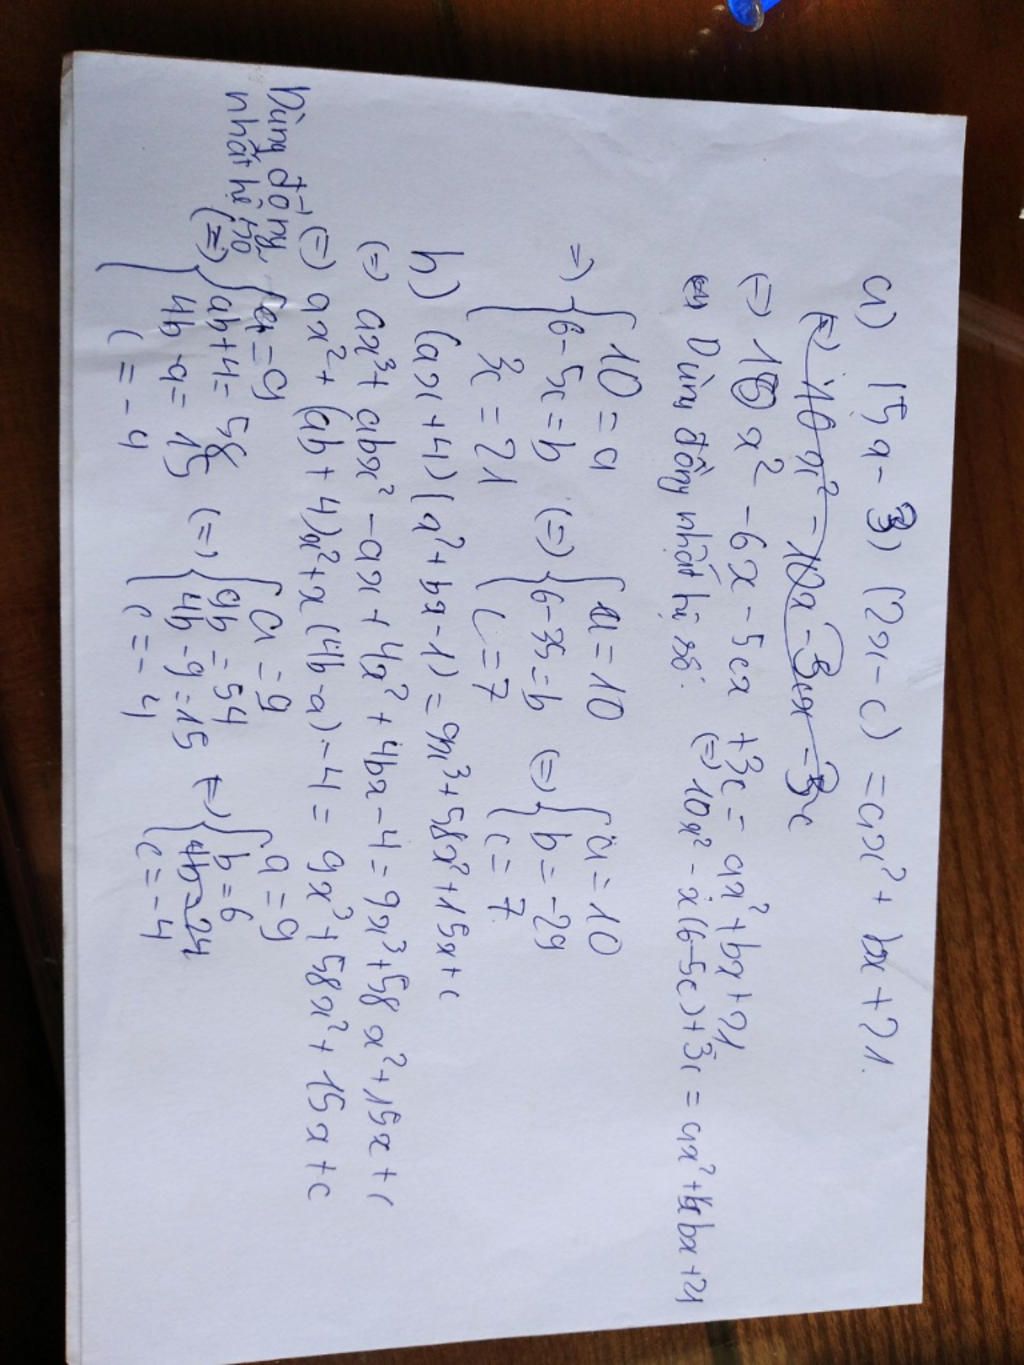 a) (5x - 3) (2x - c) = ax² + bx + 21.
(=) 10x² - 10x - 3cx - 3c
(=) 10x² - 6x - 5cx + 3c = ax² + bx + 21
Dùng đồng nhất hệ số. (=) 10x² - x(6-5c) + 3c = ax² + bx + 21
=> { 10 = a (=) { a = 10 (=) { a = 10
6 - 5c = b 6 - 35 = b b = -29
3c = 21 c = 7 c = 7
b) (ax + 4) (x² + bx - 1) = 9x³ + 58x² + 15x + c
(=) ax³ + abx² - ax + 4x² + 4bx - 4 = 9x³ + 58x² + 15x + c
(=) ax² + (ab + 4)x² + x(4b - a) - 4 = 9x³ + 58x² + 15x + c
Dùng đồng nhất hệ số
(=) { a = 9 (=) { a = 9 (=) { a = 9
ab + 4 = 58 9b = 54 b = 6
4b - a = 15 4b - 9 = 15 4b = 24
c = -4 c = -4 c = -4